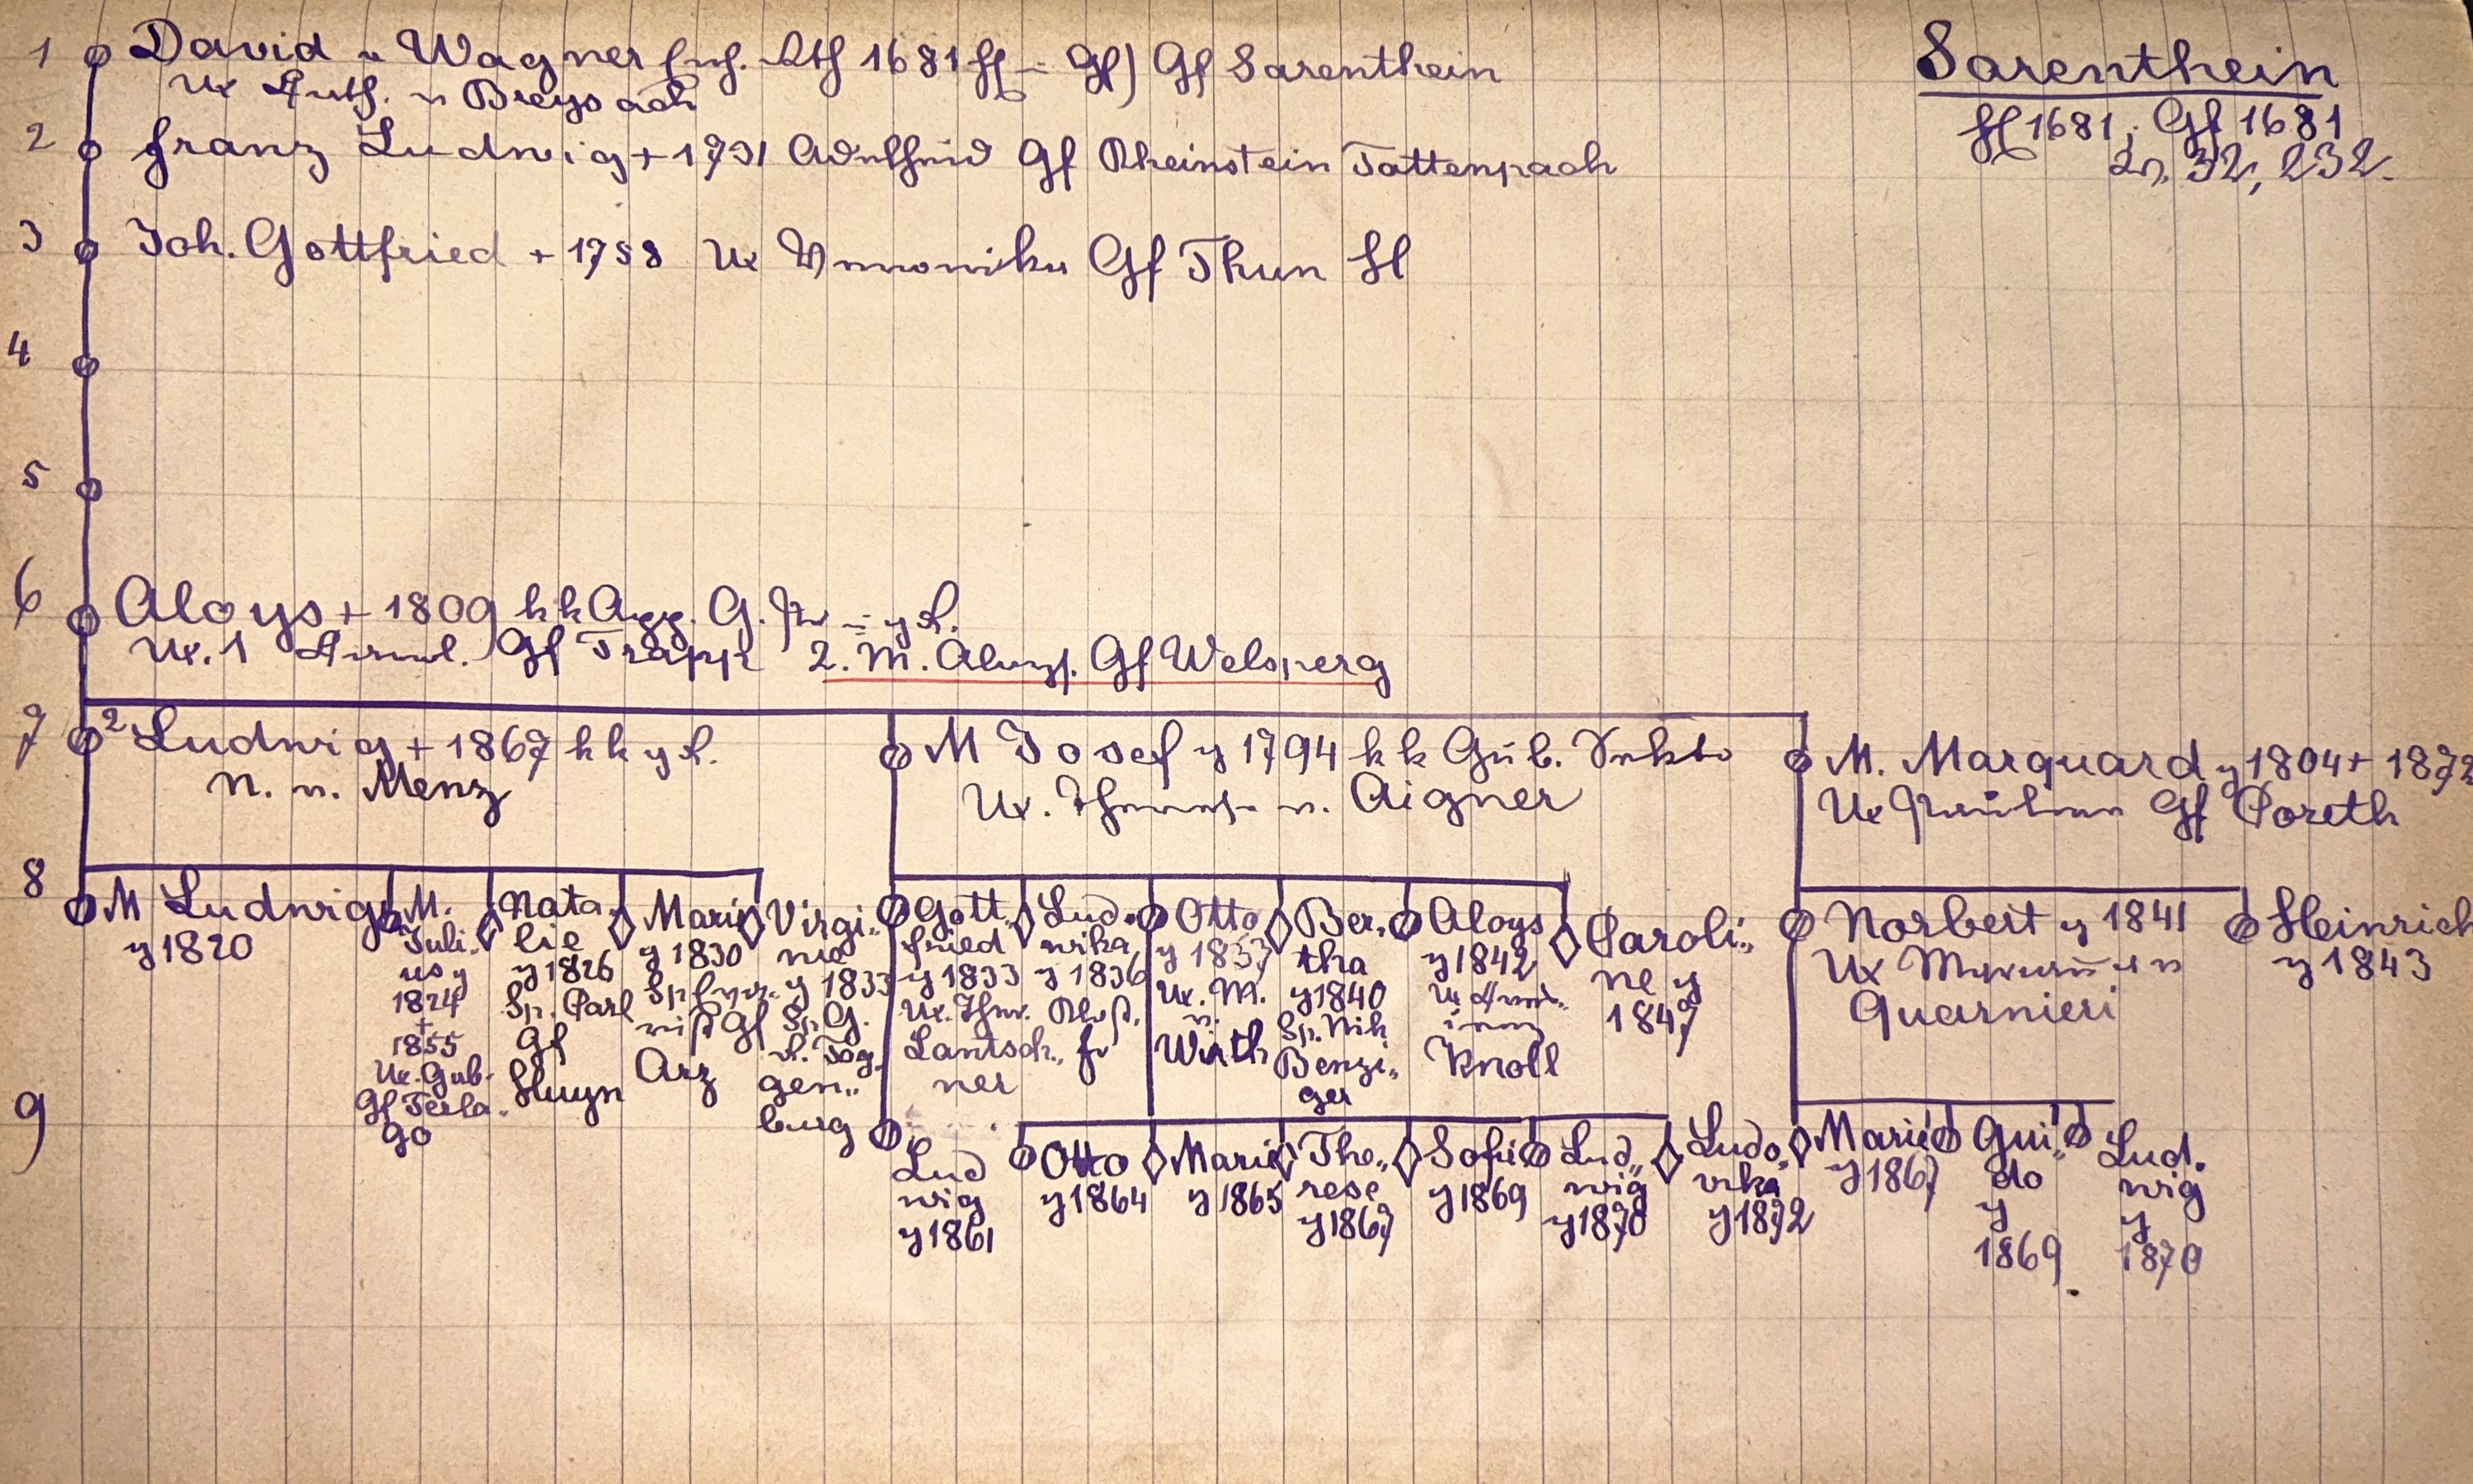 Sarenthein
Hf 1681, Gf 1681
32, 232.
1 David v Wagner 1681 Hf Gf) Gf Sarenthein
Ux v Breysach
2 Franz Ludwig + 1731 Gf Rheinstein Tattenpach
3 Joh. Gottfried + 1758 Ux Gf Thun H
4
5
6 Aloys + 1809 k k App. G.
Ux. 1 Gf Trapp 2. M. Aloys. Gf Welsperg
7 2 Ludwig + 1867 k k
N. v. Menz
M Josef y 1794 k k Gub.
Ux. v. Aigner
M. Marquard y 1804 + 1872
Ux Gf Coreth
8 M Ludwig
y 1820
M.
Juli„
us y
1824
+
1855
Ux. Gab.
Gf Terla„
go
Nata„
lie
y 1826
Sp. Carl
Gf
Huyn
Marie
y 1830
Sp Gf
Arz
Virgi„
nie
y 1833
Sp. G.
v. Tog„
gen„
burg
Gott„
fried
y 1833
Ux. Ther.
Lantsch„
ner
Lud„
wika
y 1836
Otto
y 1837
Ux. M.
v.
Wirth
Ber„
tha
y 1840
Sp. Nik
Benzi„
ger
Aloys
y 1842
Ux
Knoll
Caroli„
ne y
1847
Norbert y 1841
Ux
Guarnieri
Heinrich
y 1843
9 Lud
wig
y 1861
Otto
y 1864
Marie
y 1865
The„
rese
y 1867
Sofie
y 1869
Lud„
wig
y 1870
Ludo„
vika
y 1872
Marie
y 1867
Gui„
do
y
1869
Lud.
wig
y
1870